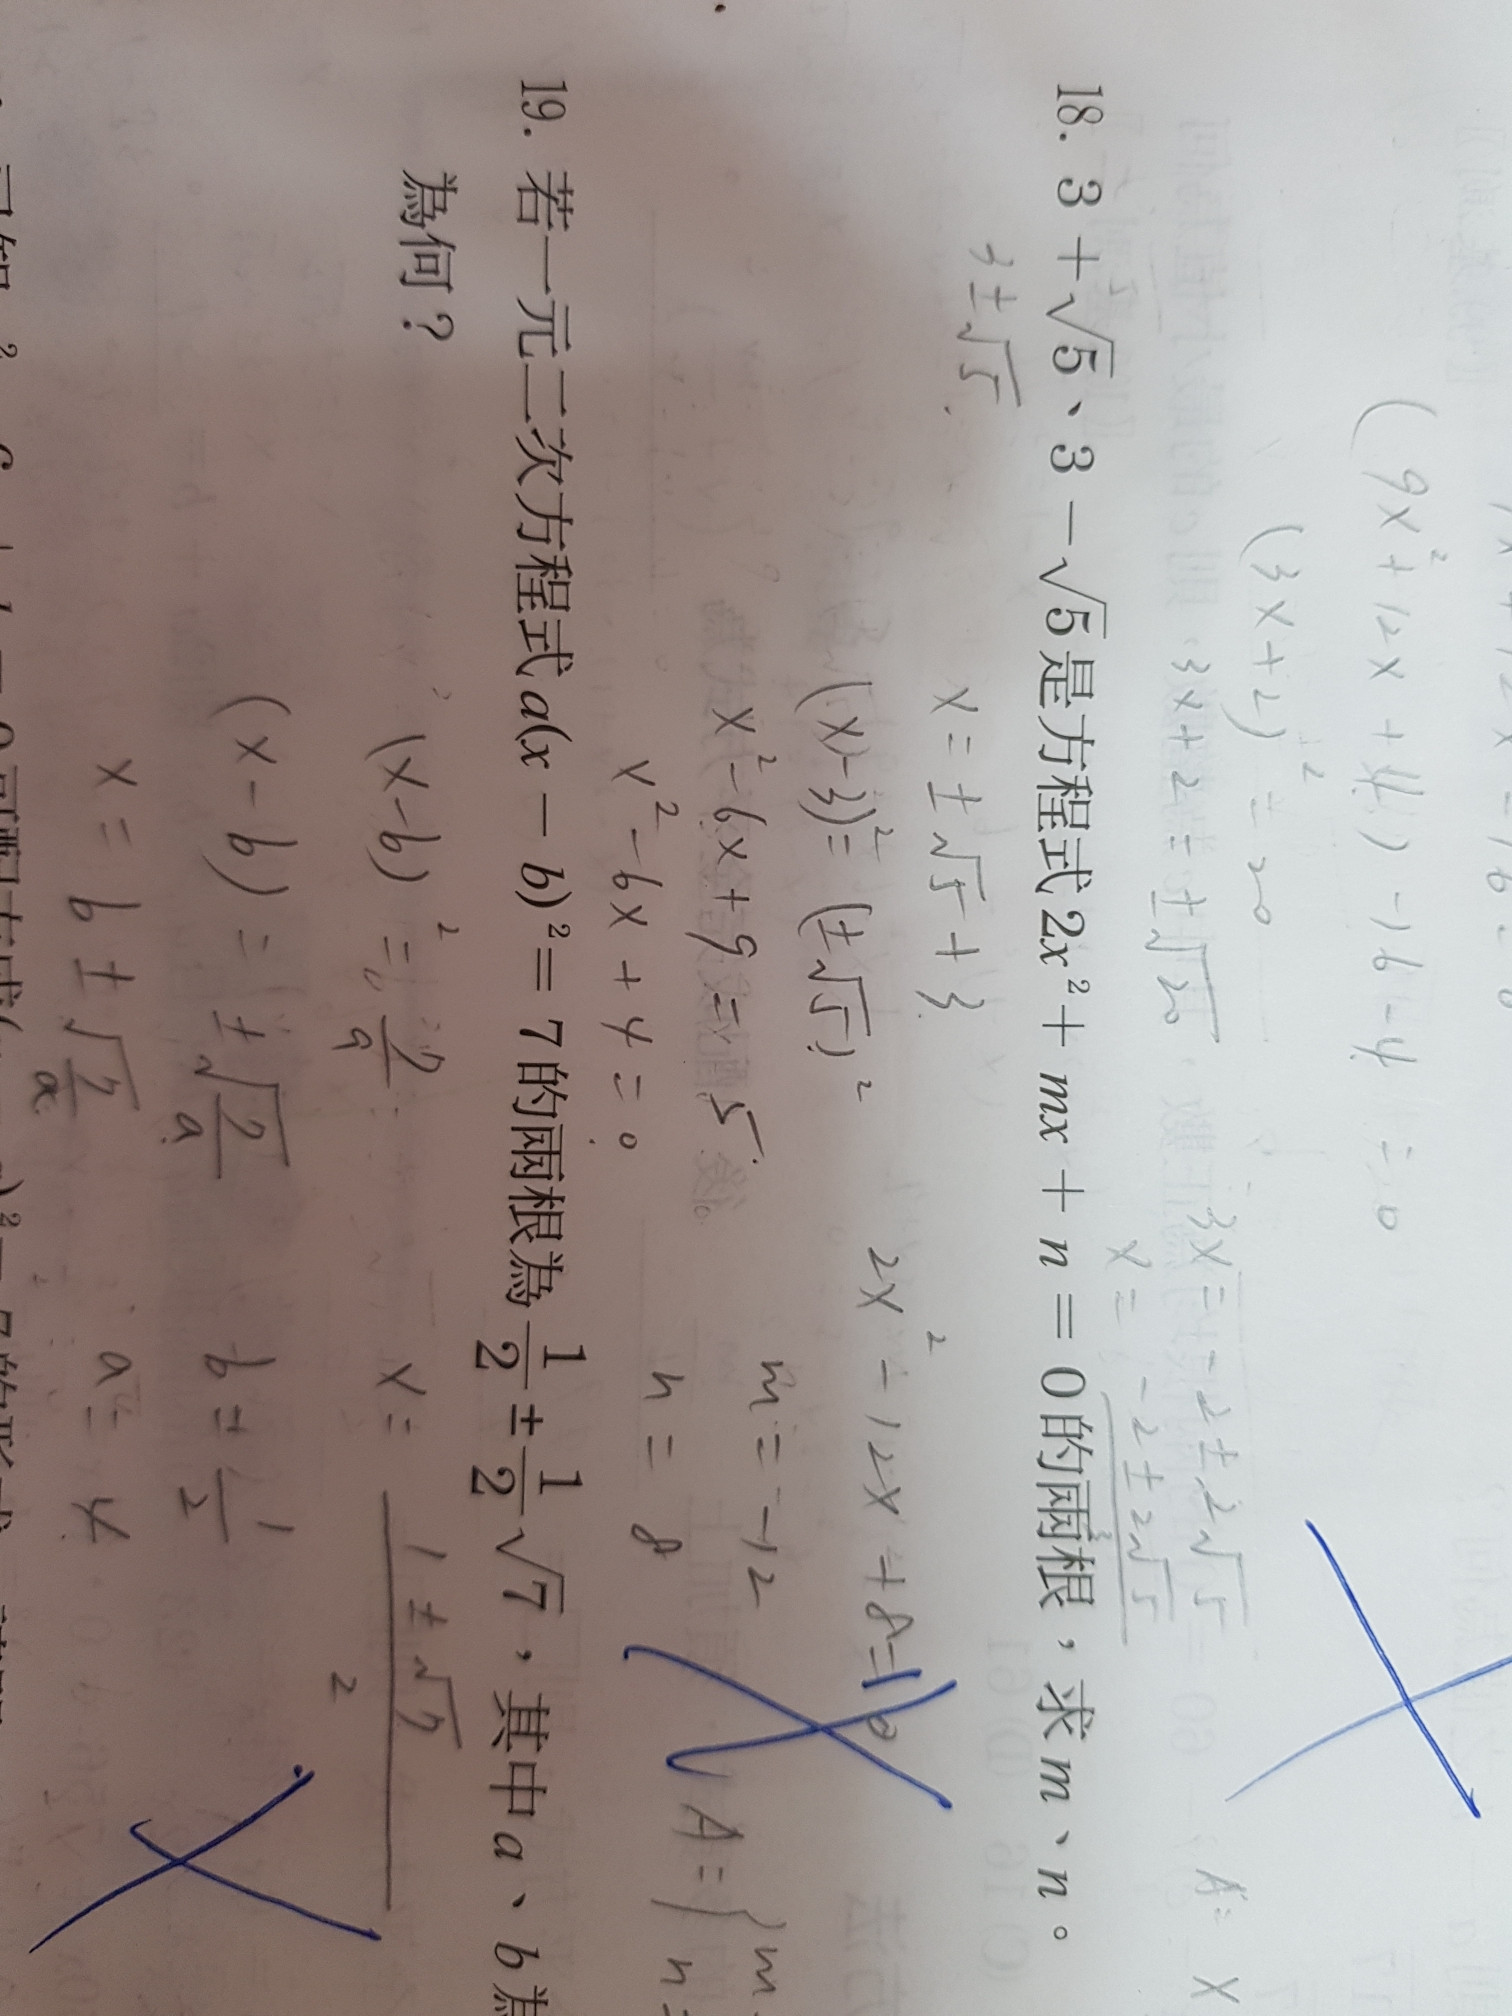 (9x²+12x+4)-16-4=0
(3x+2)²=20
3x+2=±√20
3x=-2±2√5
x=-2±2√5/3
18. 3+√5、3-√5是方程式2x²+mx+n=0的兩根，求m、n。
3±√5
x=±√5+3
(x-3)²=(±√5)²
2x²-12x+8=0
x²-6x+9=5
m=-12
x²-6x+4=0
n=8
A={m
n=
19. 若一元二次方程式a(x-b)²=7的兩根為1/2±1/2√7，其中a、b
為何？
(x-b)²=7/a
x=1±√7/2
(x-b)=±√7/a
b=1/2
x=b±√7/a
a=4